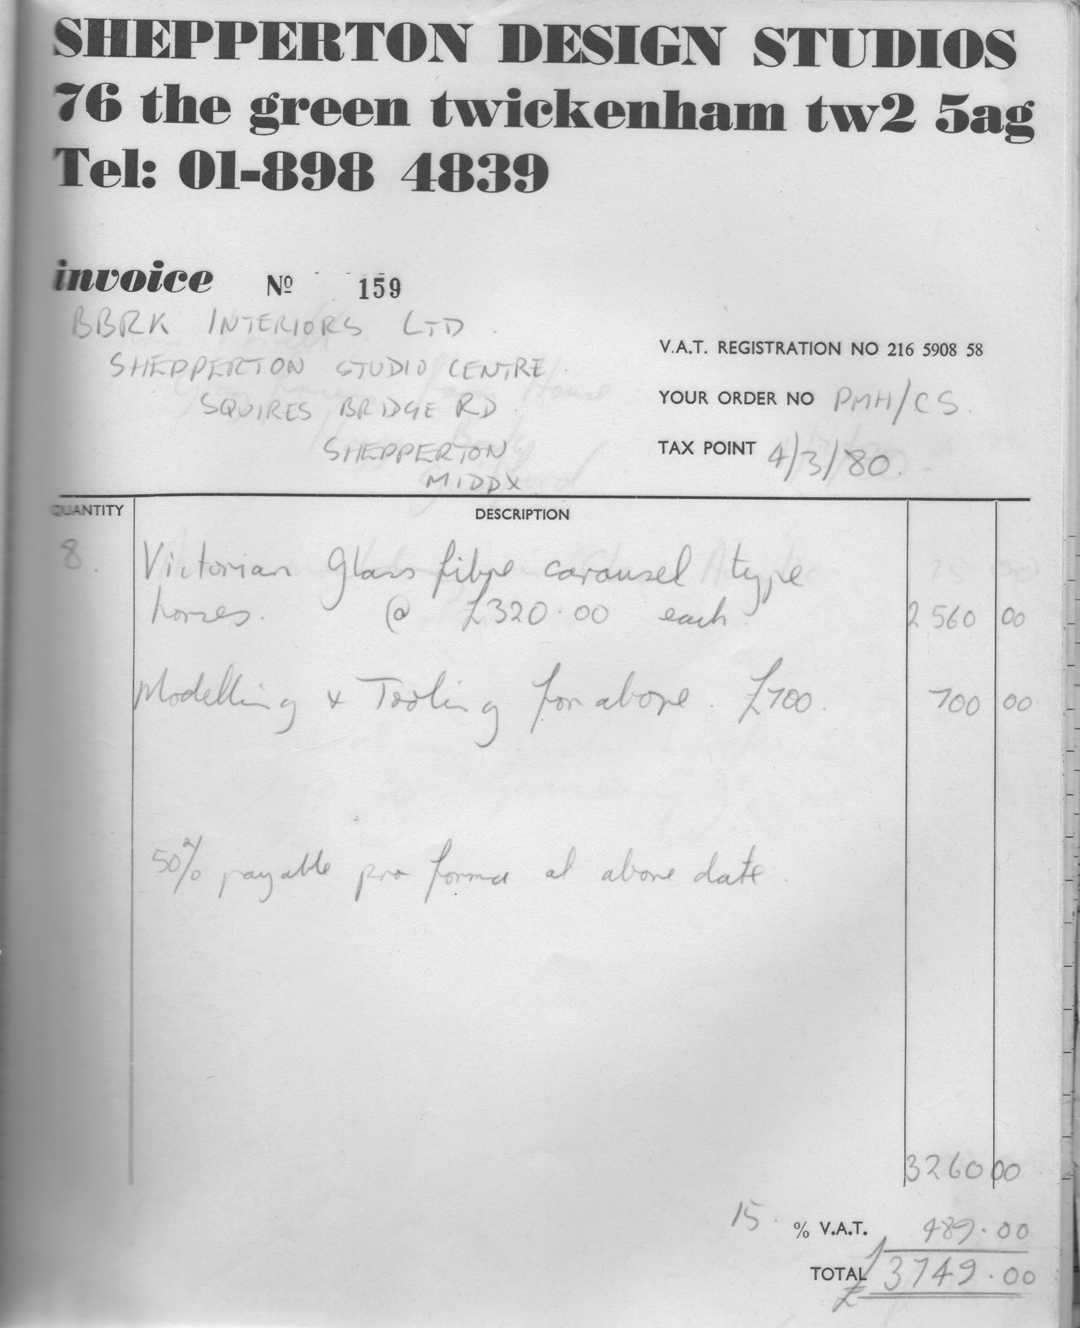 SHEPPERTON DESIGN STUDIOS
76 the green twickenham tw2 5ag
Tel: 01-898 4839
invoice Nº 159
BBRK INTERIORS LTD
SHEPPERTON STUDIO CENTRE.
SQUIRES BRIDGE RD
SHEPPERTON
MIDDX
V.A.T. REGISTRATION NO 216 5908 58
YOUR ORDER NO PMH/CS.
TAX POINT 4/3/80.
QUANTITY DESCRIPTION
8. Victorian Glass fibre carousel type
horses. @ £320.00 each. 2560 00
Modelling & Tooling for above. £700. 700 00
50% payable pro forma at above date.
3260 00
15. % V.A.T. 489.00
TOTAL £3749.00